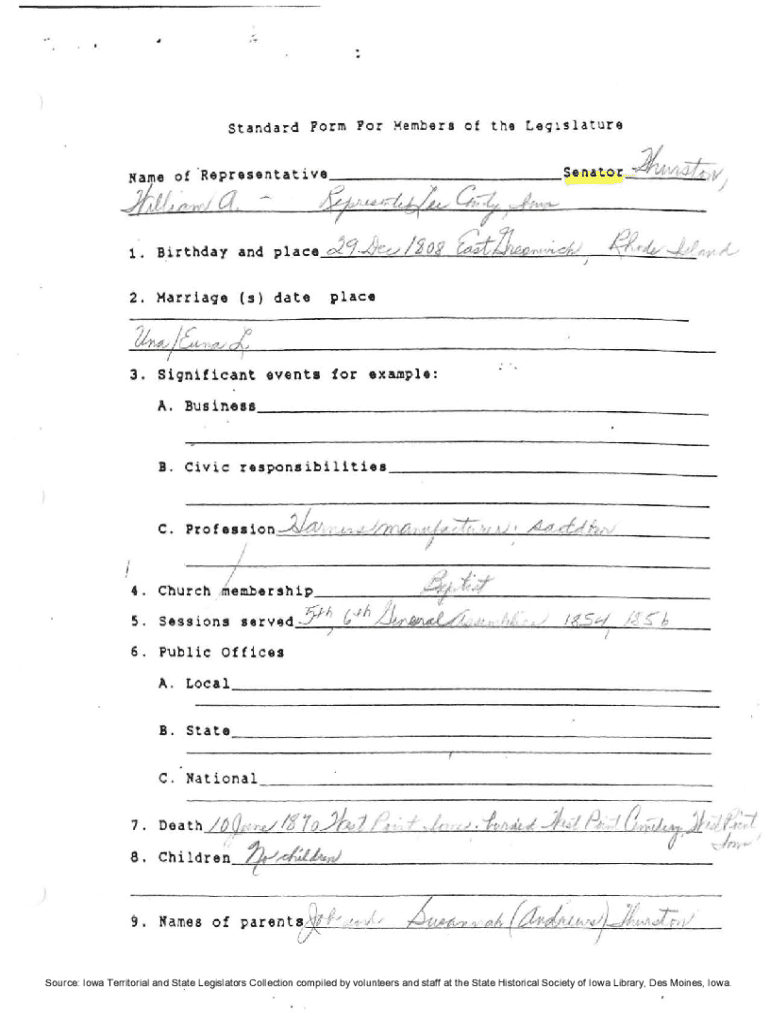 Standard Form For Members of the Legislature
Name of Representative Senator Thurston,
William A. - Represented Lee County, Iowa
1. Birthday and place 29 Dec 1808 East Greenwich, Rhode Island
2. Marriage (s) date place
Una/Euna L
3. Significant events for example:
A. Business
B. Civic responsibilities
C. Profession Harness manufacturer; saddler
4. Church membership Baptist
5. Sessions served 5th, 6th General Assemblies 1854, 1856
6. Public Offices
A. Local
B. State
C. National
7. Death 10 June 1870 West Point Iowa; buried West Point Cemetery, West Point
Iowa
8. Children No children
9. Names of parents Job and Susannah (Andrews) Thurston
Source: Iowa Territorial and State Legislators Collection compiled by volunteers and staff at the State Historical Society of Iowa Library, Des Moines, Iowa.